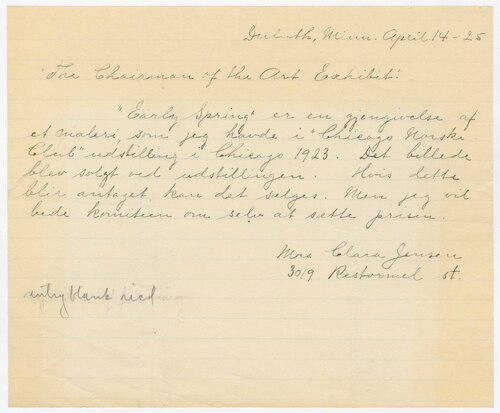 Duluth, Minn. April 14-25
"The Chairman of the Art Exhibit".
"Early Spring" er en gjengivelse af
et maleri, som jeg havde i "Chicago Norske
Club" udstilling i Chicago 1923. Det billede
blev solgt ved udstillingen. Hvis dette
blir antaget kan det selges. Men jeg vil
bede komiteen om selv at sætte prisen.
Mrs Clara Jensen
3019 Restormel st.
entry blank